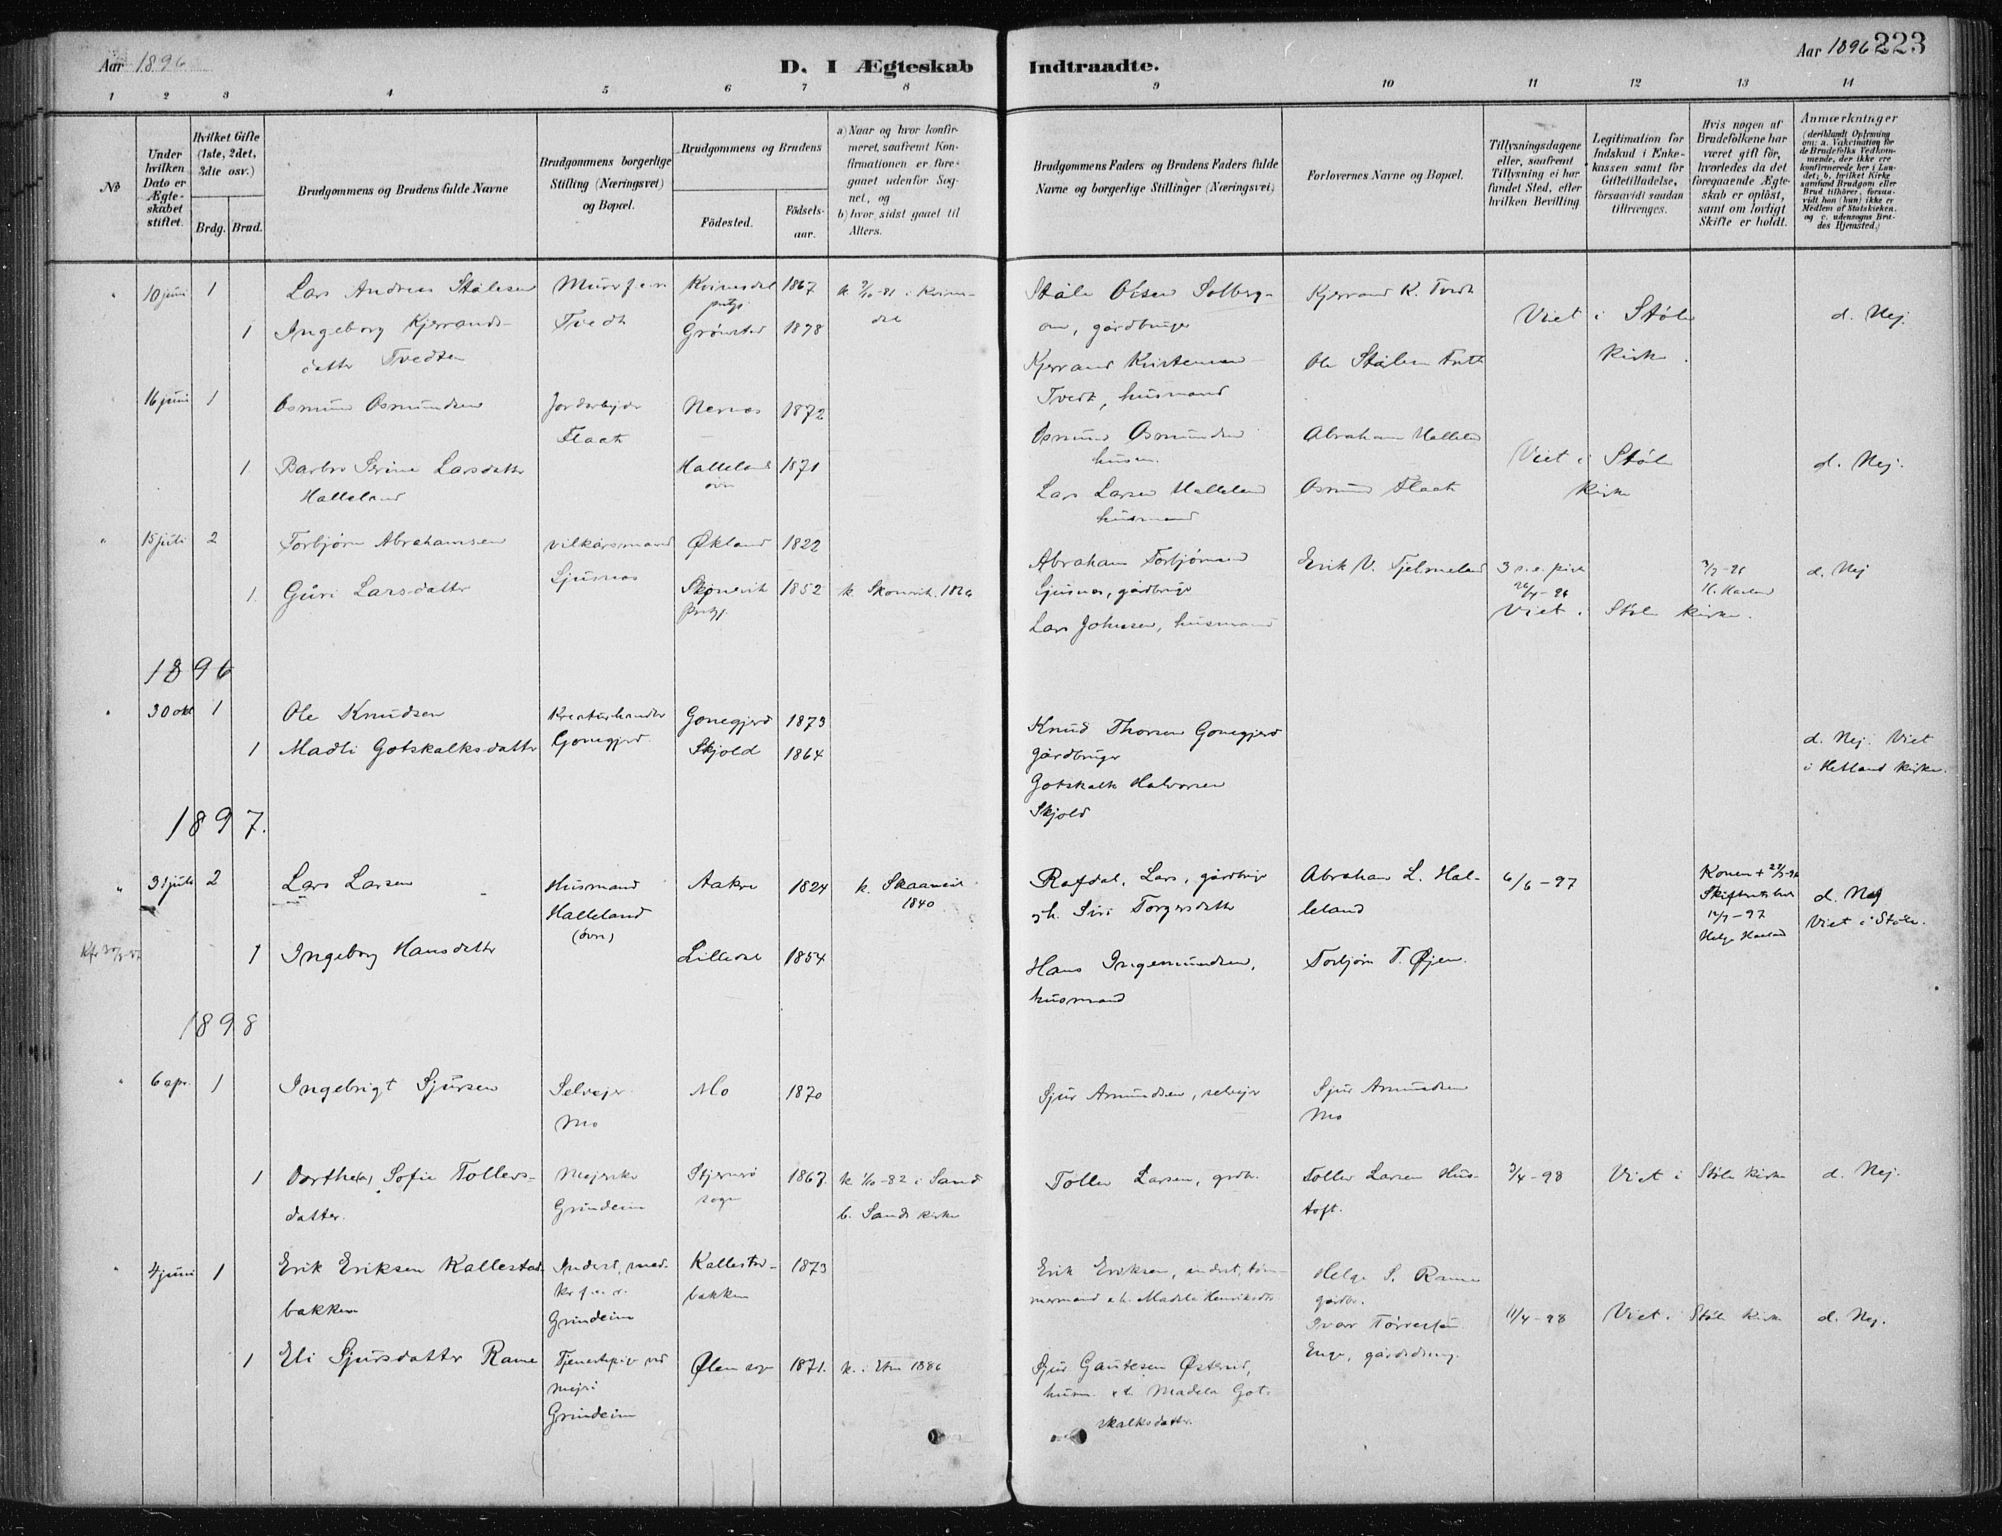 Aar 1896
D. I Ægteskab Indtraadte.
Aar 1896 223
1 2 3 4 5 6 7 8 9 10 11 12 13 14
№
Under hvilken Dato er Ægteskabet stiftet.
Hvilket Gifte (1ste, 2det, 3die osv.)
Brdg. Brud.
Brudgommens og Brudens fulde Navne
Brudgommens borgerlige Stilling (Næringsvei) og Bopæl.
Brudgommens og Brudens
Fødested.
Fødselsaar.
a) Naar og hvor konfirmeret, saafremt Konfirmationen er foregaaet udenfor Sognet, og
b) hvor sidst gaaet til Alters.
Brudgommens Faders og Brudens Faders fulde Navne og borgerlige Stillinger (Næringsvei)
Forlovernes Navne og Bopæl.
Tillysningsdagene eller, saafremt Tillysning ei har fundet Sted, efter hvilken Bevilling.
Legitimation for Indskud i Enkekassen samt for Giftetilladelse, forsaavidt saadan tiltrænges.
Hvis nogen af Brudefolkene har været gift før, hvorledes da det foregaaende Ægteskab er opløst, samt om lovligt Skifte er holdt.
Anmærkninger
(deriblandt Oplysning om: a. Vakcination for de Brudefolks Vedkommende, der ikke ere konfirmerede her i Landet; b. hvilket Kirkesamfund Brudgom eller Brud tilhører, forsaavidt han (hun) ikke er Medlem af Statskirken, og c. udensogns Brudes Hjemsted.)
10 juni 1 Lars Andreas Stålesen Murer Kvinesdal 1867 Ståle Olsen Solberg- Kjerrand K. Tvedt
prstgj
1 Ingeborg Kjerrands- Tvedt Grønstad 1878 gårdbruger Viet i Støle d. Nej.
datter Tvedten Kjerrand Kristensen Ole Stålesen Kirke.
Tvedt, husmand
16 juni 1 Osmund Osmundsen Nernes 1872 Osmund Osmundsen Abraham Halleland
Flaat husm. Viet i Støle d. Nej.
1 Barbro Serine Larsdatter Halleland 1871 Lars Larsen Halleland Osmund Flaat Kirke
Halleland øvre husmand
" 15 juli 2 Torbjørn Abrahamsen Vilkårsmand Økland 1822 Abraham Torbjørnsen Erik V. Fjelmeland d. Nej
Ljusnes gårdbruger
1 Guri Larsdatter Skonevik 1852 k. Skonvik Lars Johnsen, husmand Viet i Støle kirke.
prstgj.
1896
30 okt 1 Ole Knudsen Kreaturhandler Gonegjerd 1873 Knud Thorsen Gonegjerd
gårdbruger
1 Madli Gotskalksdatter Gonegjerd Skjold 1864 Gotskalk Halvorsen d. Nej. Viet
Skjold i Hetland kirke.
1897.
" 31 juli 2 Lars Larsen Husmand Aakre 1824 k. Skaanevik 1840 Rafdal, Lars, gårdbrug Abraham L. Hal- 6/6-97 d. Nej
Halleland (øvre) Siri Torgersdatter leland Helge Viet i Støle.
1 Ingeborg Hansdatter Lilledal 1854 Hans Ingemundsen, Torbjørn T. Øjen.
husmand
1898
" 6 apr. 1 Ingebrigt Sjursen Selvejer Mo 1870 Sjur Amundsen, selvejr Sjur Amundsen
Mo Mo
1 Dorthea Sofie Tollers- Mejerske Stjernerø 1867. k. 1/10-82 i Sand Toller Larsen, grdb. Toller Larsen Hus- 3/4-98 Viet i Støle Kirke d. Nej.
datter. Grindeim sogn b. Sands kirke toft.
" 4 juni 1 Erik Eriksen Kallestad- Kallestad- 1873 Erik Eriksen, inderst, tøm- Helge S. Rame
bakken Grindeim bakken mermand Madela Henriksdtr gårdbr.
Ivar Tørresen 11/4-98 Viet i Støle Kirke d. Nej.
1 Eli Sjursdatter Rame Tjenestepige ved Ølen sogn 1871. k. i Etne 1886 Sjur Gautesen Østensid, Enge, gårdsdreng.
mejeri Grindeim husm. Madela Got-
skalksdatter.